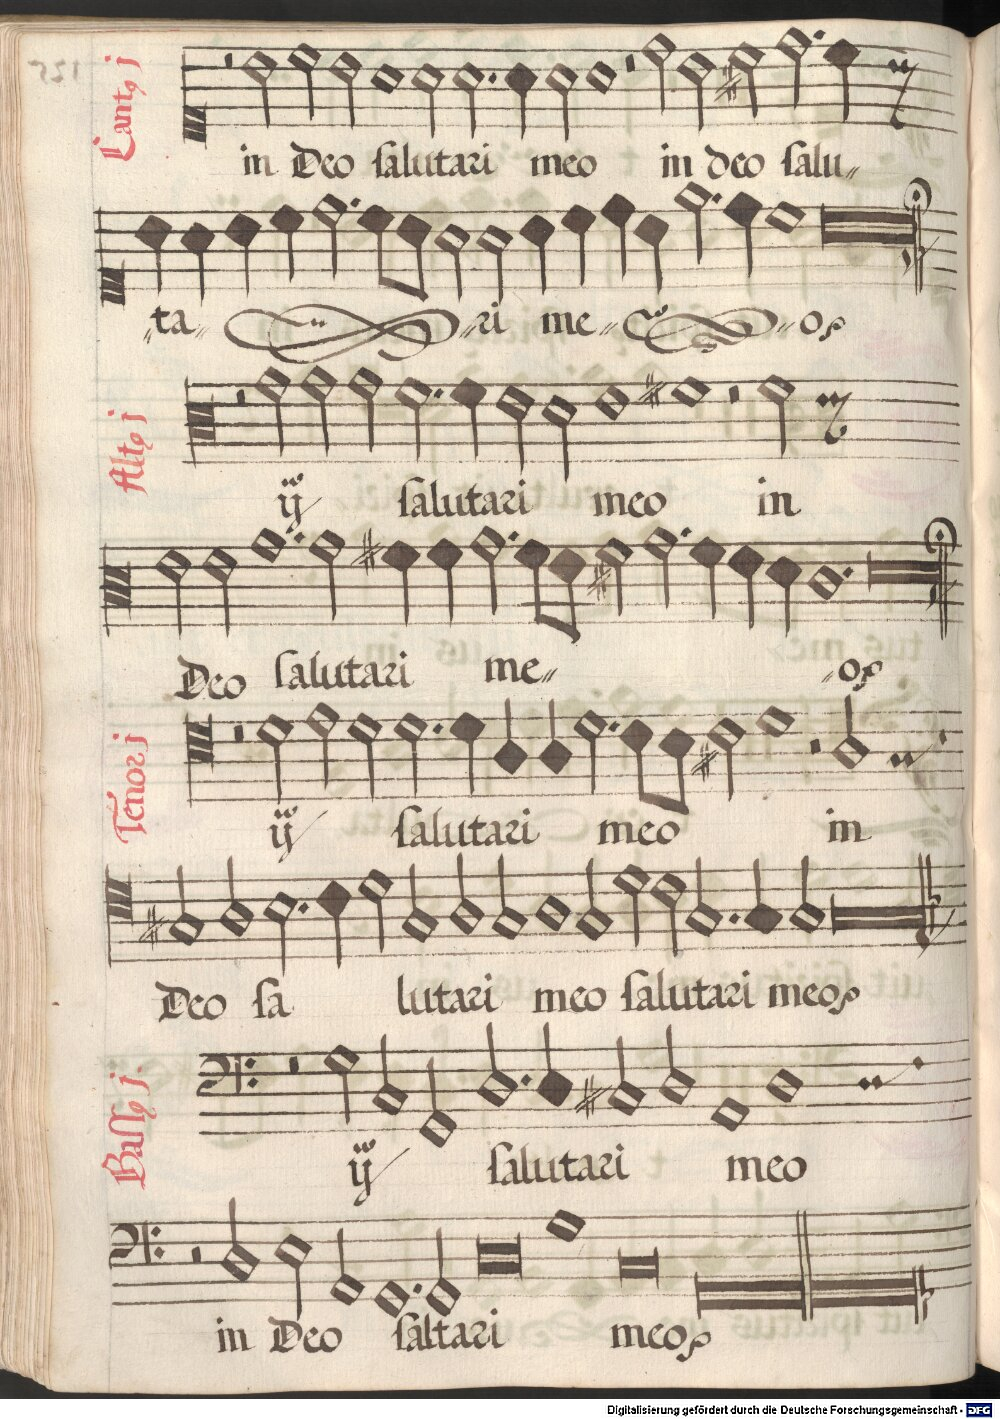 Cantꝯ j
in Deo salutari meo in deo salu„
„ta„ „ri me„ „os
Altꝯ j
ÿ salutari meo in
Deo salutari me„ „os
Tenor j
ÿ salutari meo in
Deo sa lutari meo salutari meos
Bassꝯ j
ÿ salutari meo
in Deo saltari meos
Digitalisierung gefördert durch die Deutsche Forschungsgemeinschaft - DFG